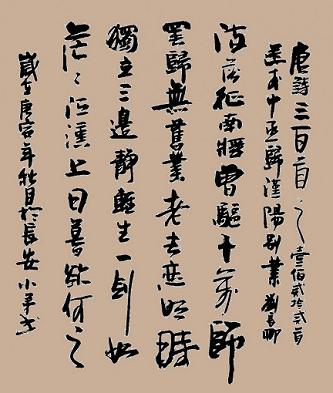 唐詩三百首之壹佰貳拾貳首
送李中丞歸漢陽別業 劉長卿
流落征南將曾驅十萬師
罷歸無舊業老去戀明時
獨立三邊靜輕生一劍知
茫〻江漢上日暮欲何之
歲在庚寅年秋月於長安小平書